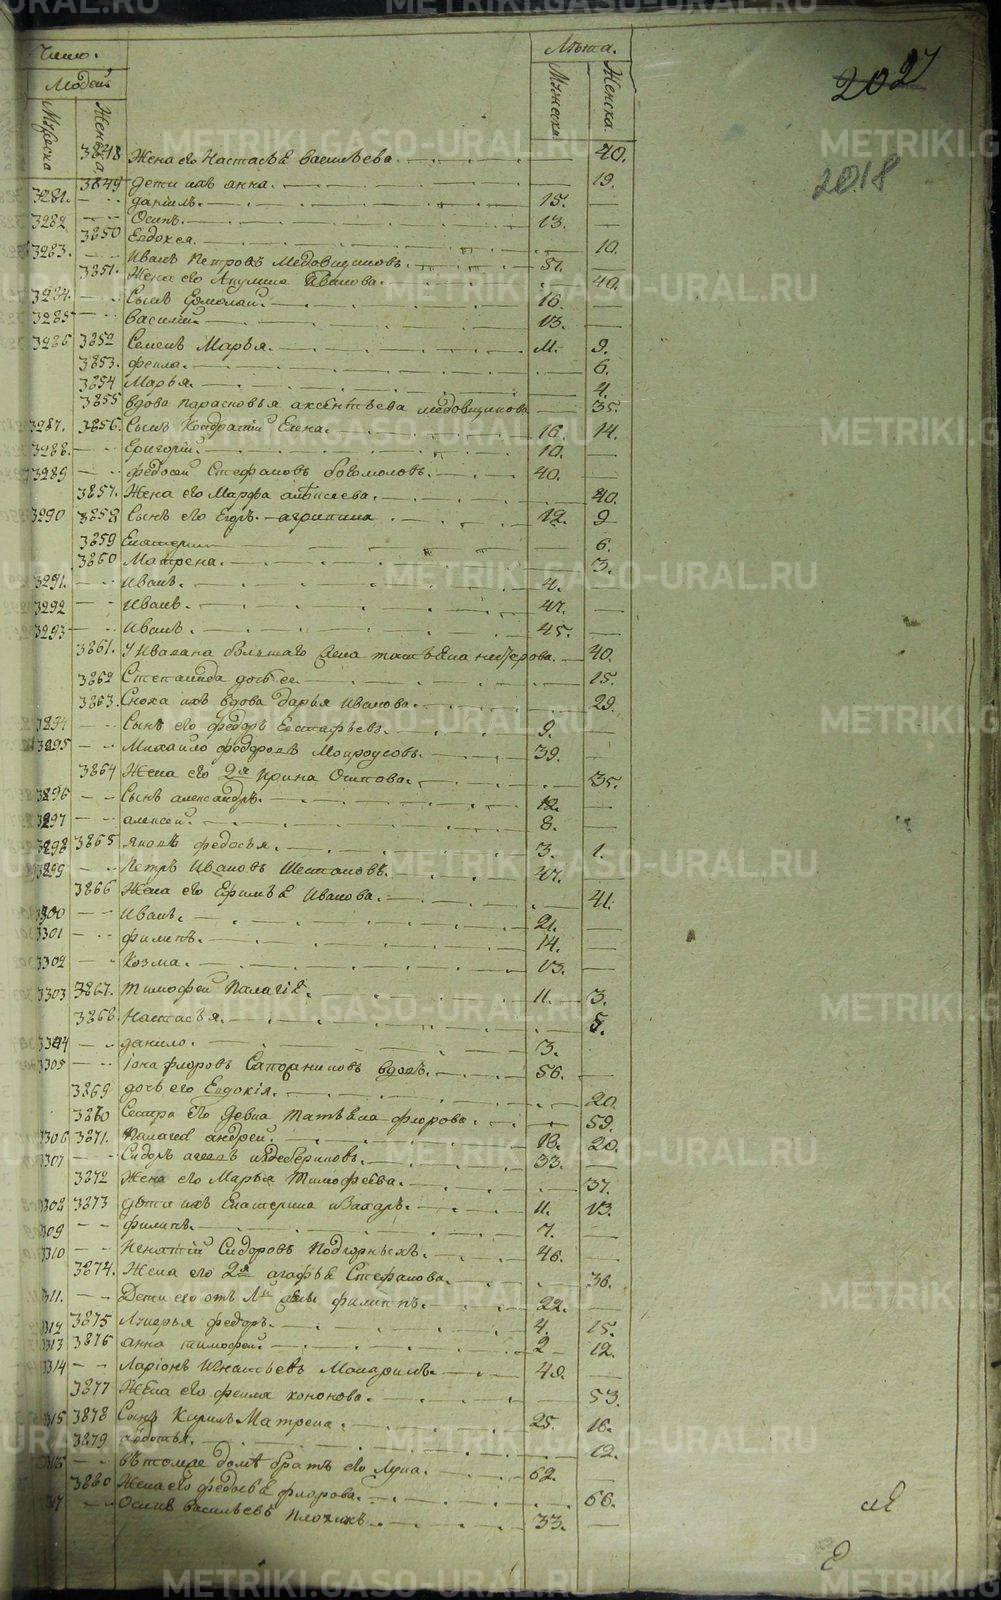 Число. Лѣта.
Людей
Мужеска Женска Мужеска Женска. 2027
3848 Жена его Настасья васильева. 40. 2018
3849 дети ихъ анна. 19.
3281. данилъ. 15.
3282 Осипъ. 13.
3850 Евдокея. 10.
3283. Иванъ Петровъ Медовщиковъ. 51.
3851. Жена его Акулина Иванова. 40.
3284. Сынъ Ермолай. 16.
3285 Василий. 13.
3286 3852 Семенъ Марья. 11. 9.
3853. фекла. 6.
3854 Марья. 4.
3855 вдова парасковья аксентьева медовщикова 35.
3287. 3856. Сынъ Кондратий Елена. 16. 14.
3288. Григорий. 10.
3289 федосей Стефановъ богомоловъ. 40.
3857. Жена его Марфа 40.
3290 3858 Сынъ его Егоръ. агрипина 12. 9
3859 Екатерин 6.
3860 Матрена. 3.
3291. Иванъ. 4.
3292 Иванъ. 47.
3293 Иванъ. 45.
3861. У Ивана большаго жена татьяна 40.
3862 Степанида дочь ее. 15.
3863. Сноха ихъ вдова дарья иванова. 29.
3294 Сынъ его федоръ Евстафьевъ. 9.
3295 Михайло 39.
3864 Жена его 2я ирина Осипова. 35.
3296 Сынъ александръ. 12.
3297 алексей. 8.
3298 3865 яковъ федосья. 3. 1.
3299 Петръ Ивановъ 47.
3866 Жена его Ефимья Иванова. 41.
3300 Иванъ. 21.
3301 филипъ. 14.
3302 Козма. 13.
3303 3867. Тимофей Палагія. 11. 3.
3868. Настасья. 5.
3304 данило. 3.
3305 Іона флоровъ вдовъ. 56.
3869 дочь его Евдокія. 20.
3870 Сестра его девка Татьяна флорова. 59.
3306 3871. Палагея андрей. 18. 20.
3307 Сидоръ 33.
3872 Жена его Марья Тимофеева. 37.
3308 3873 дѣти ихъ Екатерина Захаръ. 11. 13.
3309 филипъ. 7.
3310 Сидоровъ Подгорныхъ. 46.
3874. Жена его 2я агафья Стефанова. 36.
3311. Дети его отъ 1й жены филиппъ. 22.
3312 3875 Лукерья федоръ. 4. 15.
3313 3876 анна тимофей. 2 12.
3314 Ларионъ Игнатьевъ 48.
3877 Жена его фекла кононова. 53.
3315 3878 Сынъ Кирилъ Матрена. 25. 16.
3879 авдотья. 12.
3316 въ томже доме братъ его Лука. 62.
3880 Жена его федосья флорова. 66.
3317 Осипъ васильевъ 33.